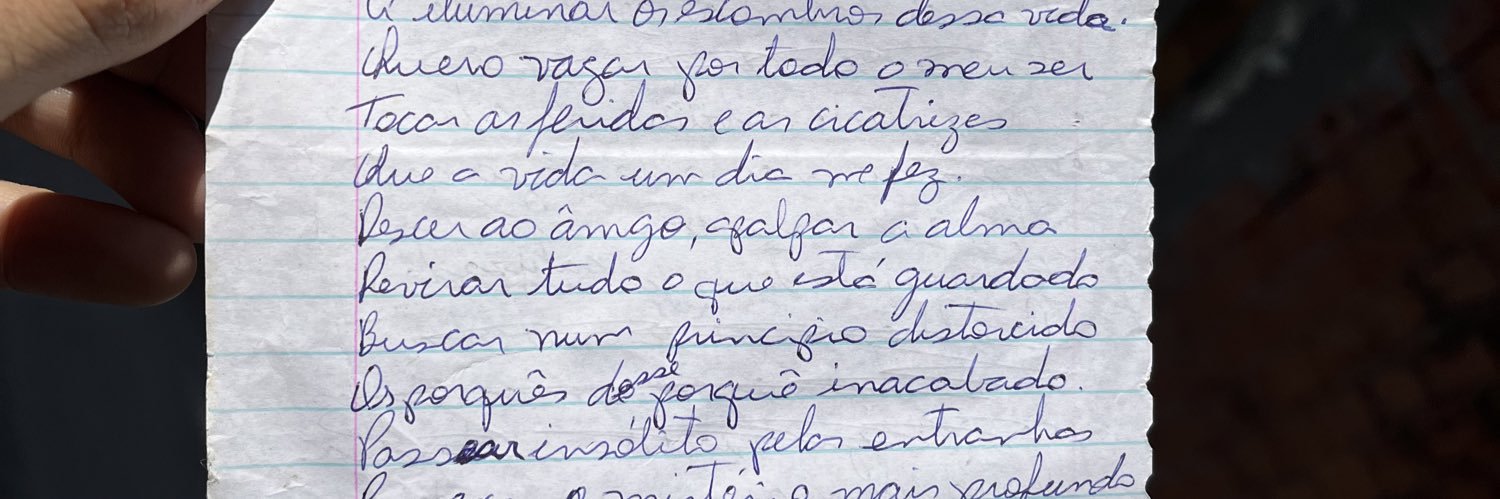 iluminar os escombros dessa vida.
Quero vagar por todo o meu ser
Tocar as feridas e as cicatrizes
Que a vida um dia me fez.
Descer ao âmgo, apalpar a alma
Revirar tudo o que está guardado
Buscar num princípio distorcido
Os porquês desse porquê inacabado.
Passear insólito pelas entranhas
o mistério mais profundo